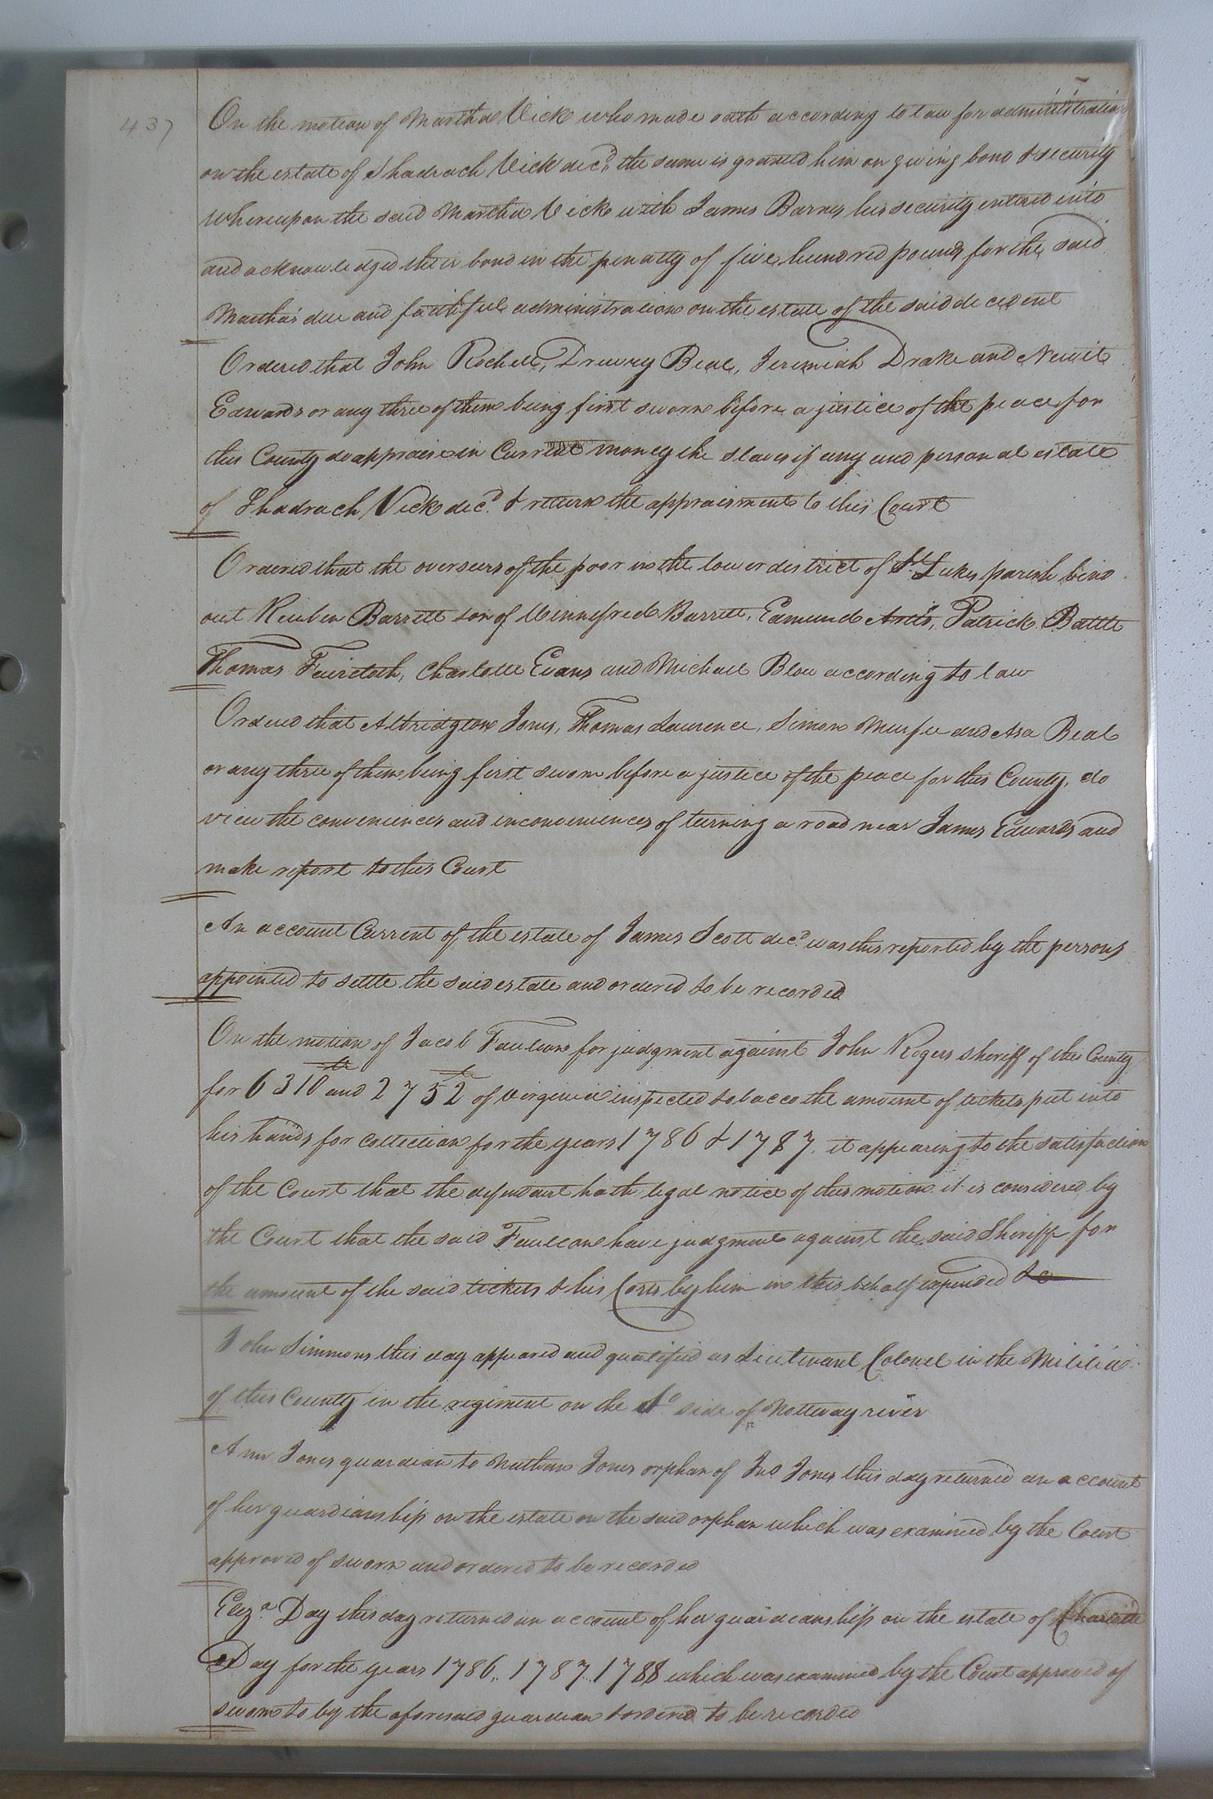 437
On the motion of Martha Vick who made oath according to law for administration
on the estate of Shadrach Vick decd. the same is granted him on giving bond & security
Whereupon the said Martha Vick with James Barnes his security entered into
and acknowledged their bond in the penalty of five hundred pounds for the said
Martha's due and faithful administration on the estate of the said decedent
Ordered that John Rochell, Drewry Beal, Jeremiah Drake and Newit
Edwards or any three of them being first sworn before a justice of the peace for
this County do appraise in Current money the slaves if any and personal estate
of Shadrach Vick decd. & return the appraisment to this Court
Ordered that the overseers of the poor in the lower district of St. Lukes parish bind
out Reuben Barrett son of Winnifred Barrett, Edmund Patrick Battle
Thomas Faircloth, Charlotte Evans and Michael Blow according to law
Ordered that Albridgton Jones, Thomas Laurence, Simon Murfee and Asa Beal
or any three of them being first sworn before a justice of the peace for this County, do
view the conveniences and inconveniences of turning a road near James Edwards and
make report to this Court
An account Current of the estate of James Scott decd. was this reported by the persons
appointed to settle the said estate and ordered to be recorded
On the motion of Jacob Faulcon for judgment against John Rogers sheriff of this County
for 6310 lb and 2752 lb of Virginia inspected tobacco the amount of tickets put into
his hands for collection for the years 1786 & 1787, it appearing to the satisfaction
of the Court that the defendant hath legal notice of this motion it is considered by
the Court that the said Faulcon have judgment against the said Sheriff for
the amount of the said tickets & his Costs by him in this behalf expended &c
John Simmons this day appeared and qualified as Lieutenant Colonel in the Militia
of this County in the regiment on the So side of Nottoway river
Ann Jones guardian to Nathan Jones orphan of Jno Jones this day returned an account
of her guardianship on the estate on the said orphan which was examined by the Court
approved of sworn and ordered to be recorded
Eliza. Day this day returned an account of her guardianship on the estate of Charlotte
Day for the years 1786, 1787, 1788 which was examined by the Court approved of
sworn to by the aforesaid guardian & ordered to be recorded